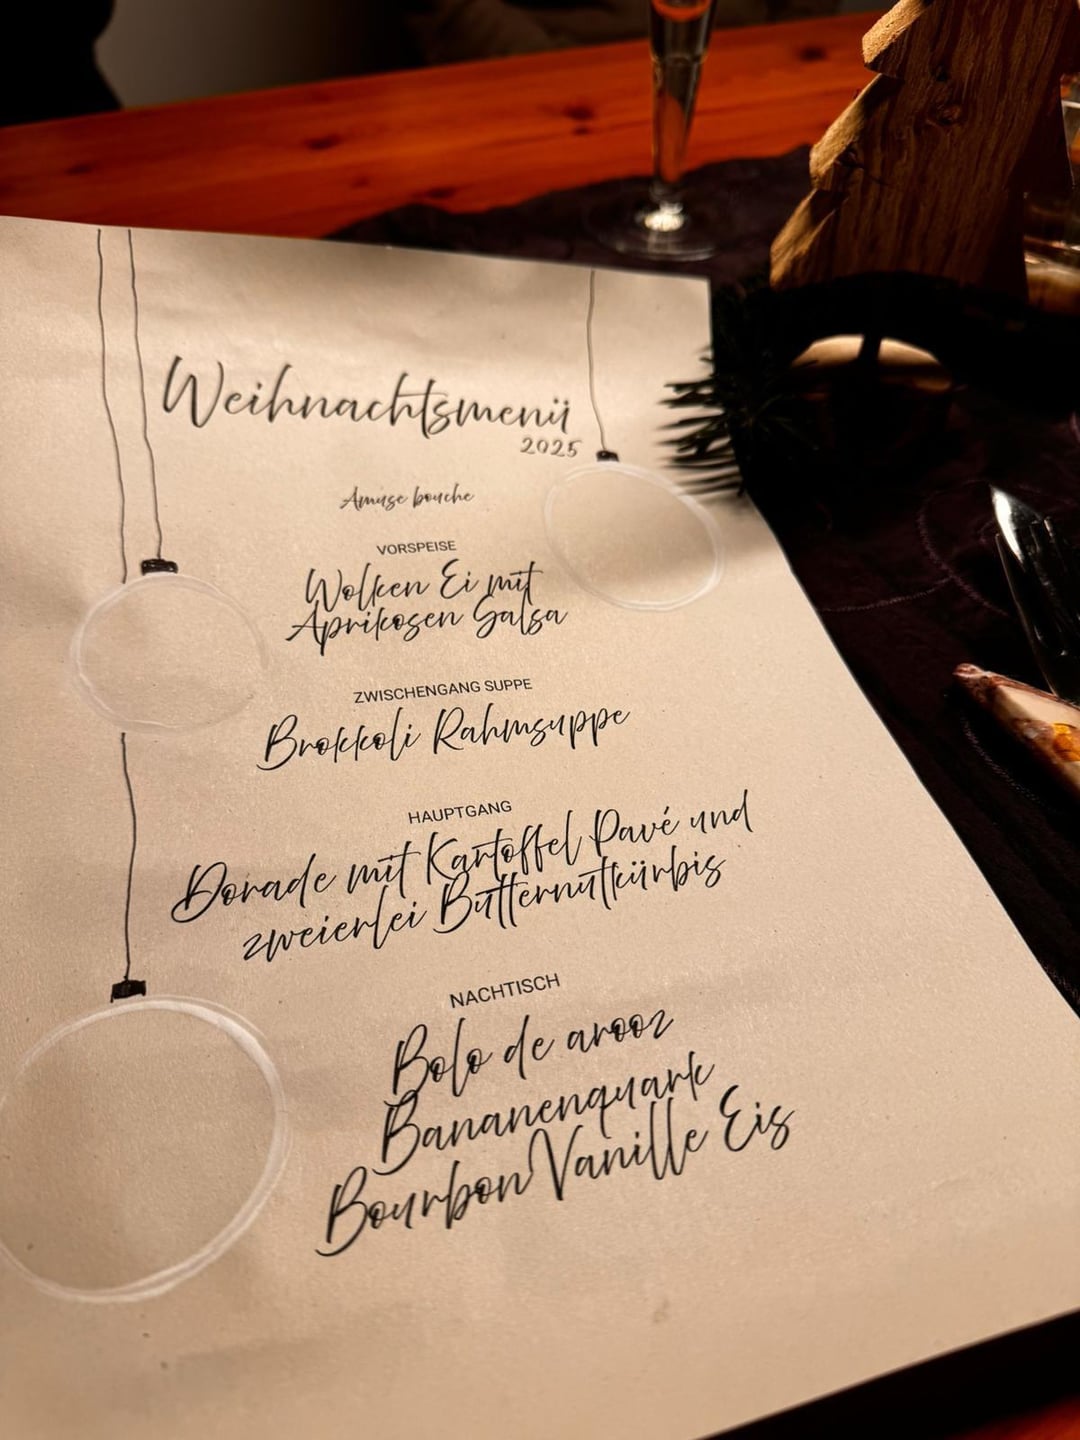 Weihnachtsmenü
2025
Amuse bouche
VORSPEISE
Wolken Ei mit
Aprikosen Salsa
ZWISCHENGANG SUPPE
Brokkoli Rahmsuppe
HAUPTGANG
Dorade mit Kartoffel Pavé und
zweierlei Butternutkürbis
NACHTISCH
Bolo de arooz
Bananenquark
Bourbon Vanille Eis